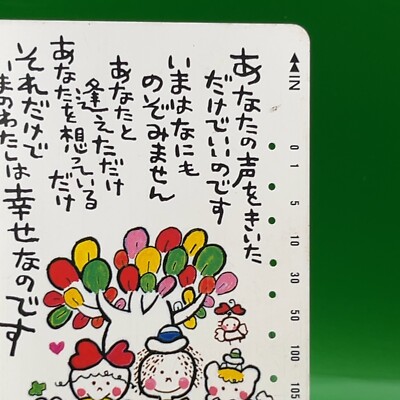 あなたの声をきいた
だけでいいのです
いまはなにも
のぞみません
あなたと
逢えただけ
あなたを想っている
だけ
それだけで
いまのわたしは幸せなのです
IN
0
1
5
10
30
50
100
105